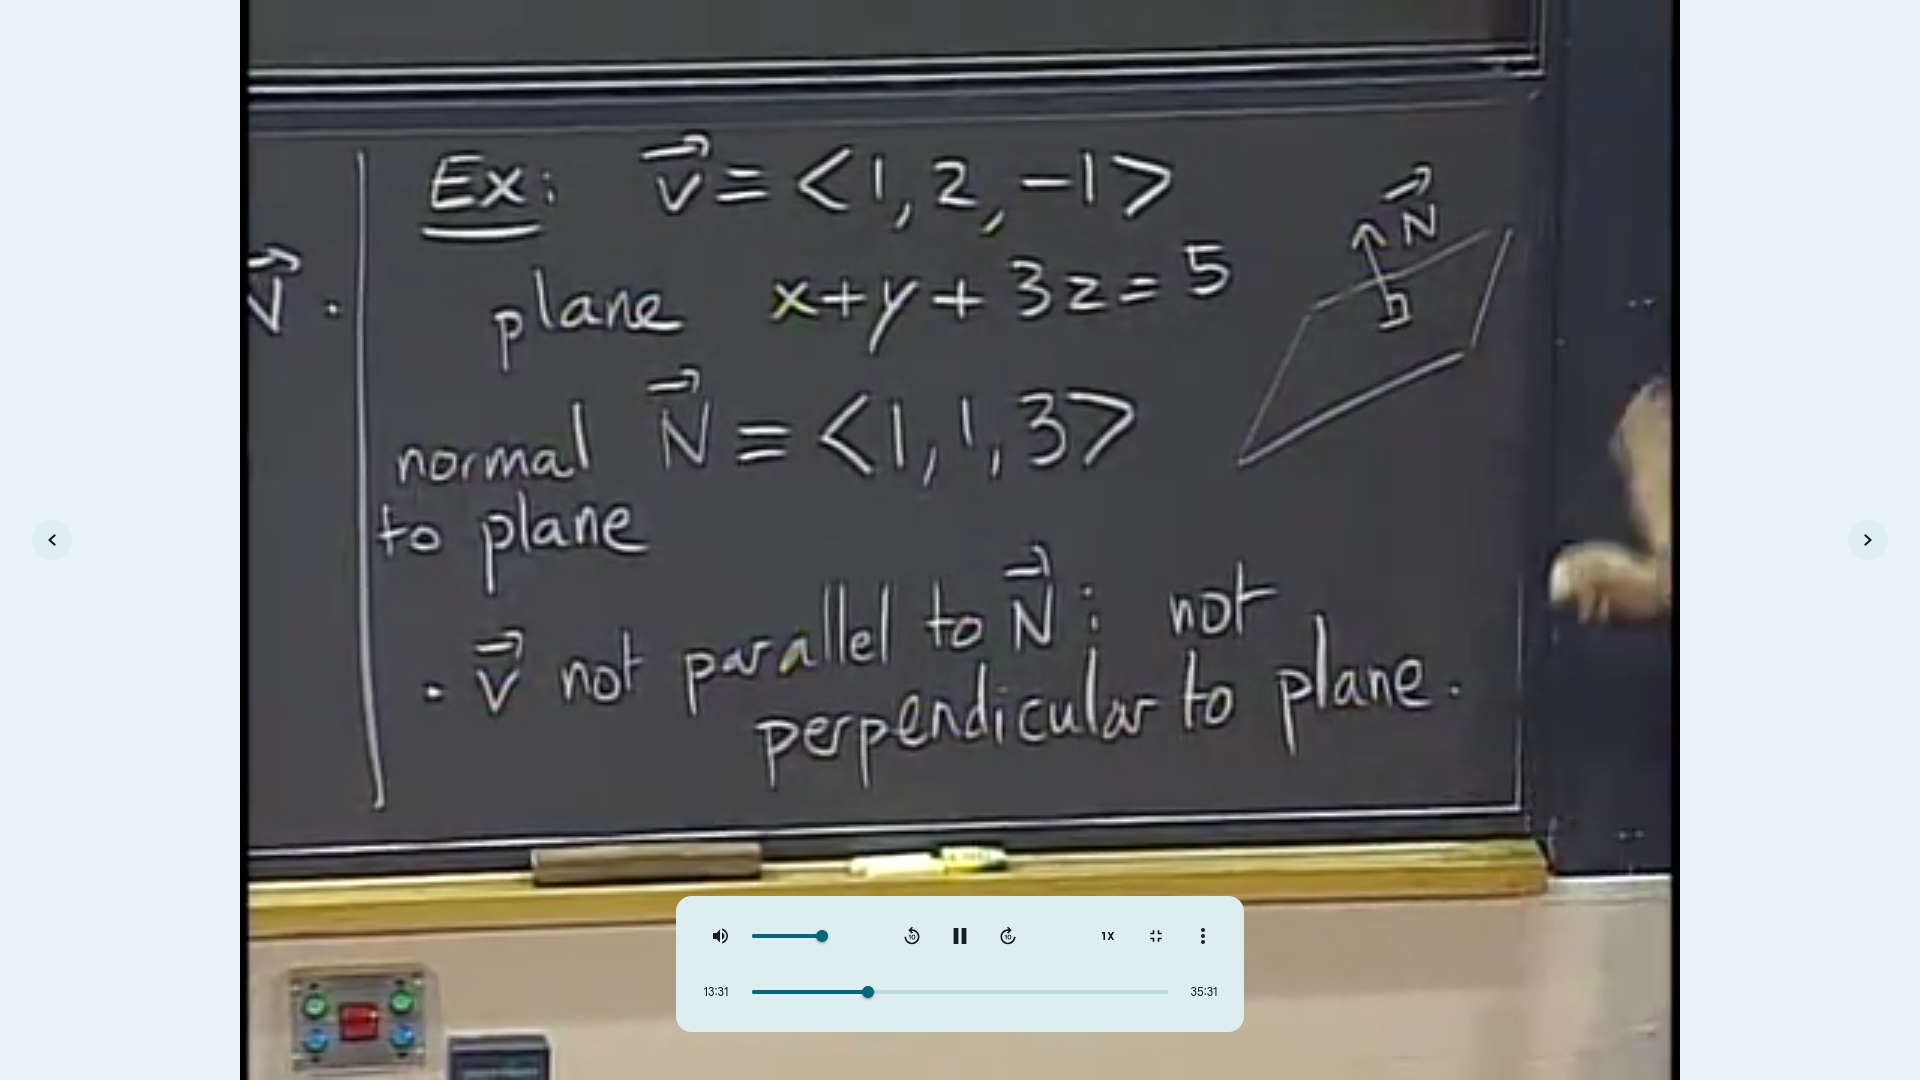 V⃗ .
Ex: v⃗ = <1, 2, -1>
plane x+y+3z=5
normal N⃗ = <1, 1, 3>
to plane
N⃗
. v⃗ not parallel to N⃗ : not
perpendicular to plane.
10 10 1X
13:31 35:31